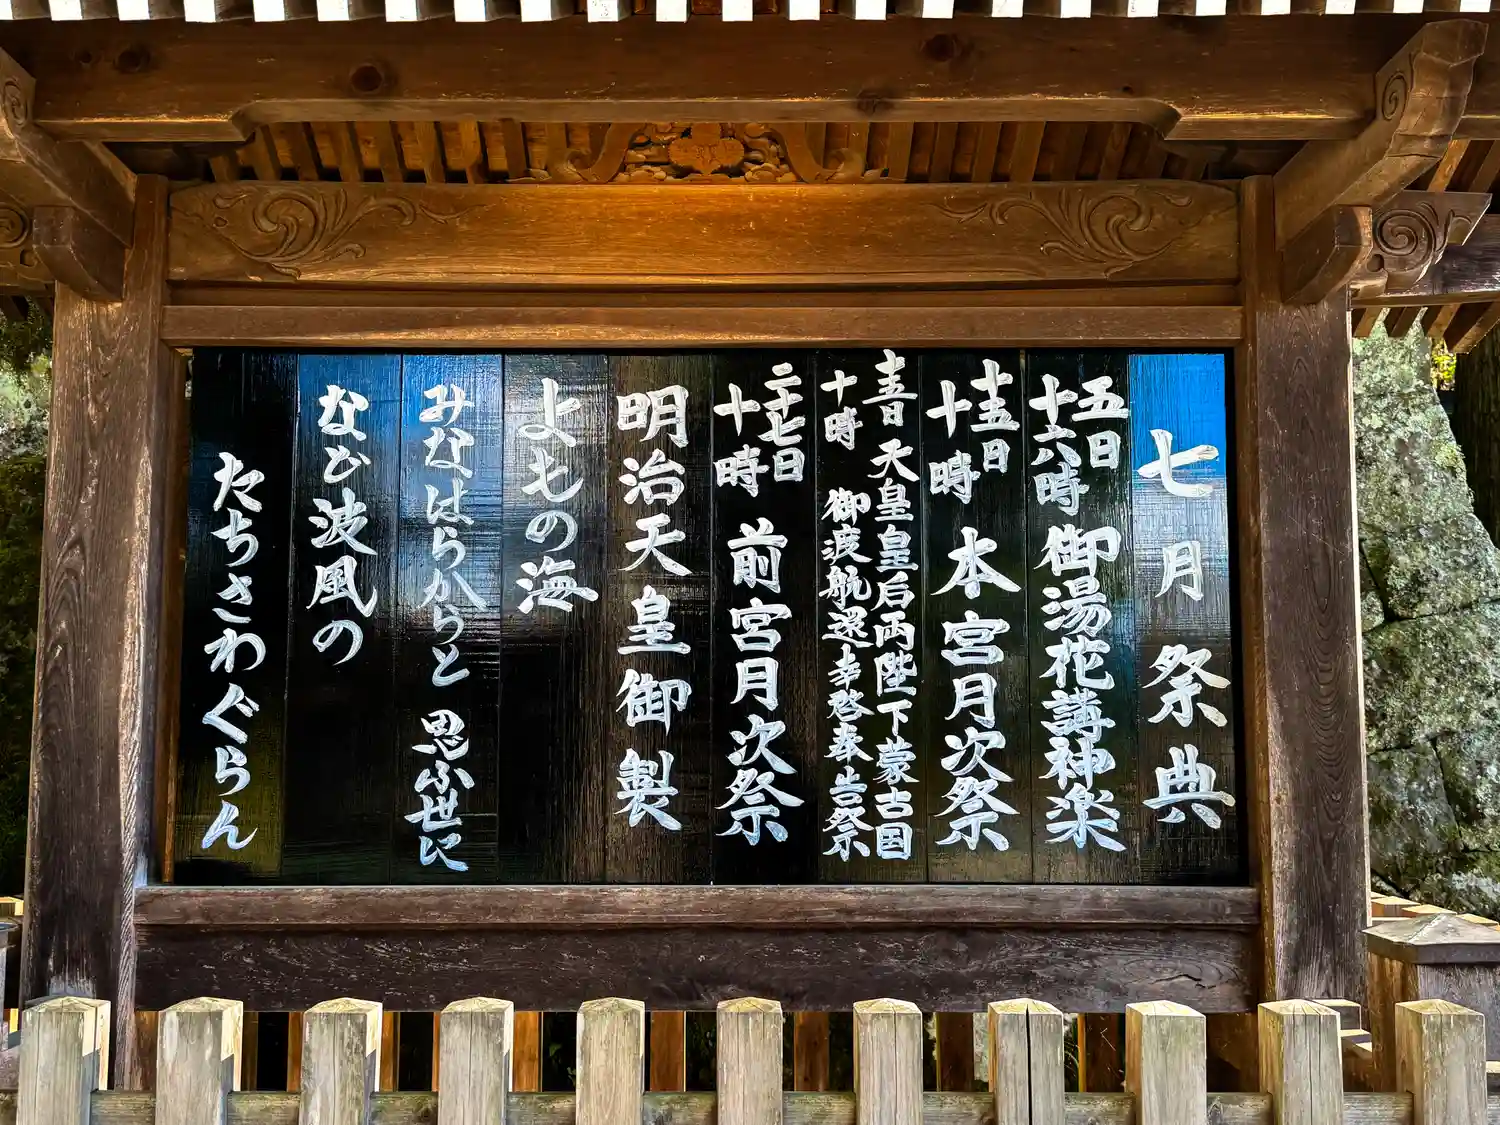 七月祭典
五日
十六時
御湯花講神楽
十五日
十時
本宮月次祭
十五日
十時
天皇皇后両陛下蒙古国
御渡航還幸啓奉告祭
二十七日
十時
前宮月次祭
明治天皇御製
よもの海
みなはらからと 思ふ世に
なび波風の
たちさわぐらん